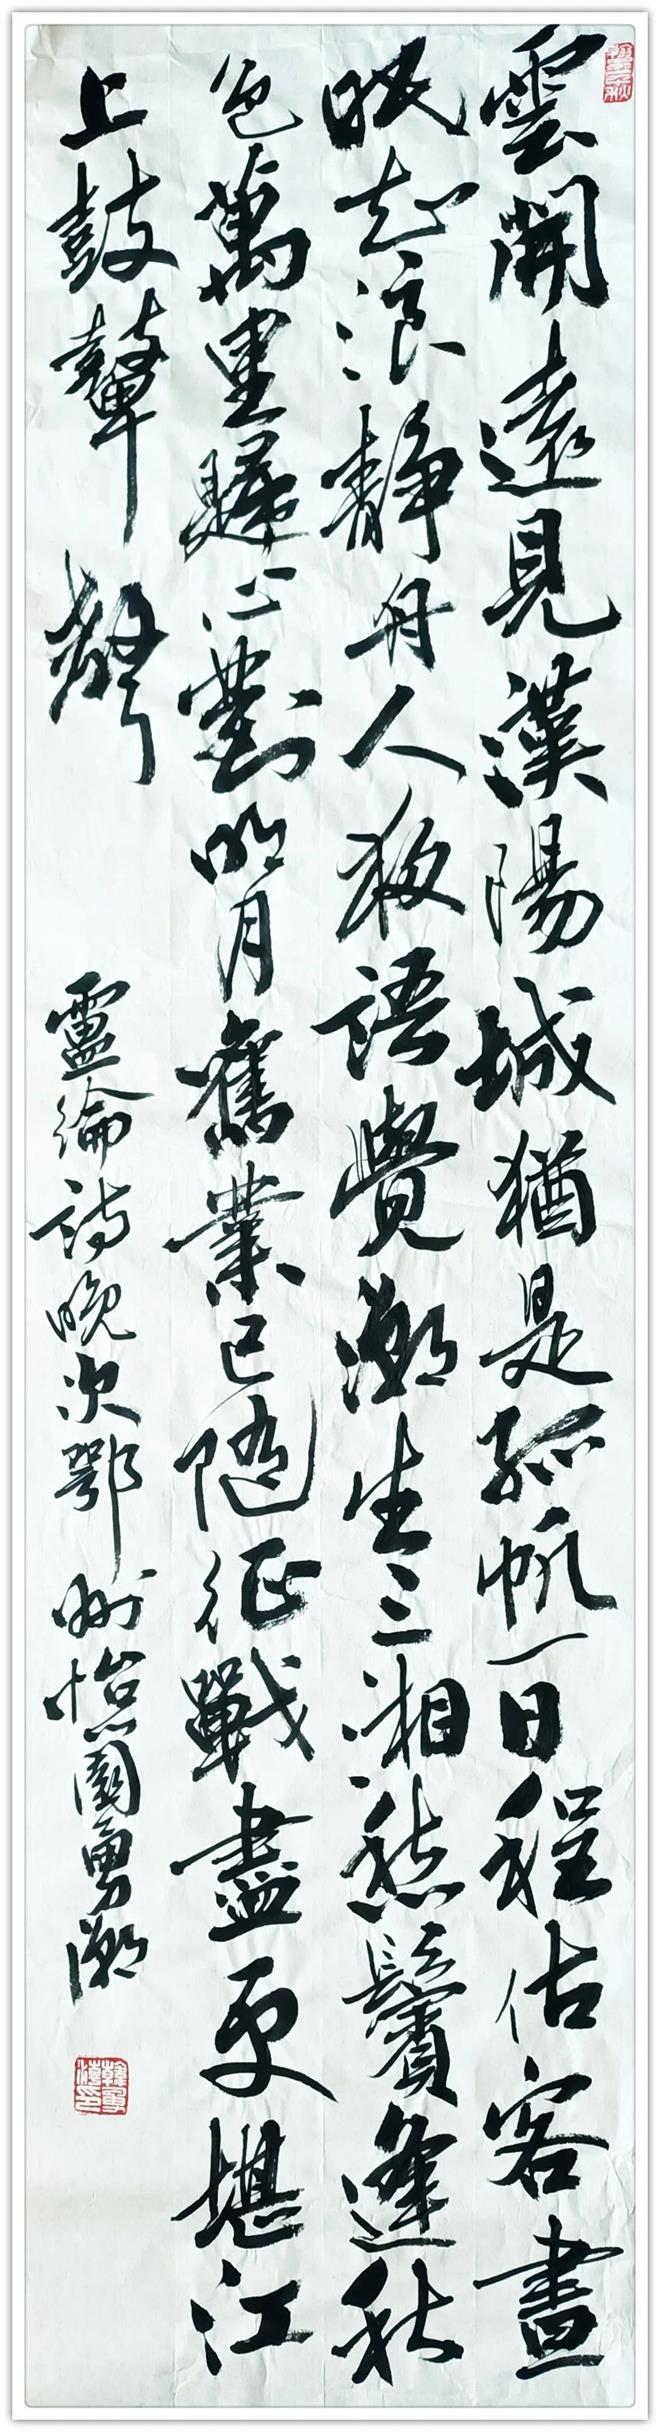 雲開遠見漢陽城猶是孤帆一日程估客晝
眠知浪靜舟人夜語覺潮生三湘愁鬢逢秋
色萬里歸心對明月舊業已隨征戰盡更堪江
上鼓鼙聲 盧綸詩晚次鄂州怡園勇潮